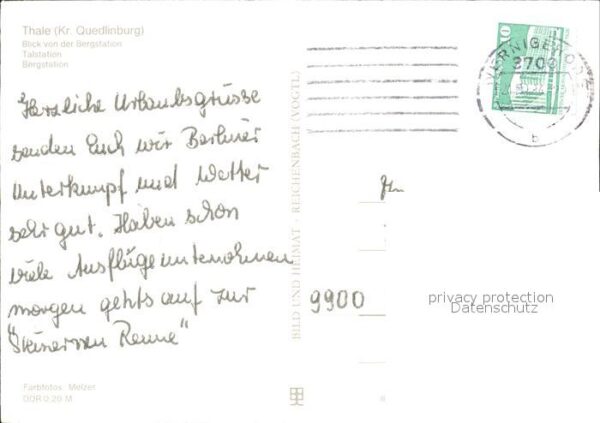 Thale (Kr. Quedlinburg)
Blick von der Bergstation
Talstation
Bergstation
Herzliche Urlaubsgrüsse
senden Euch wir Berliner
Unterkunft und Wetter
sehr gut. Haben schon
viele Ausflüge unternohmen
morgen gehts auf zur
"Steinernen Renne"
Farbfotos: Melzer
DDR 0,20 M
BILD UND HEIMAT · REICHENBACH (VOGTL)
10
WERNIGERODE
3700
b
9900
privacy protection
Datenschutz